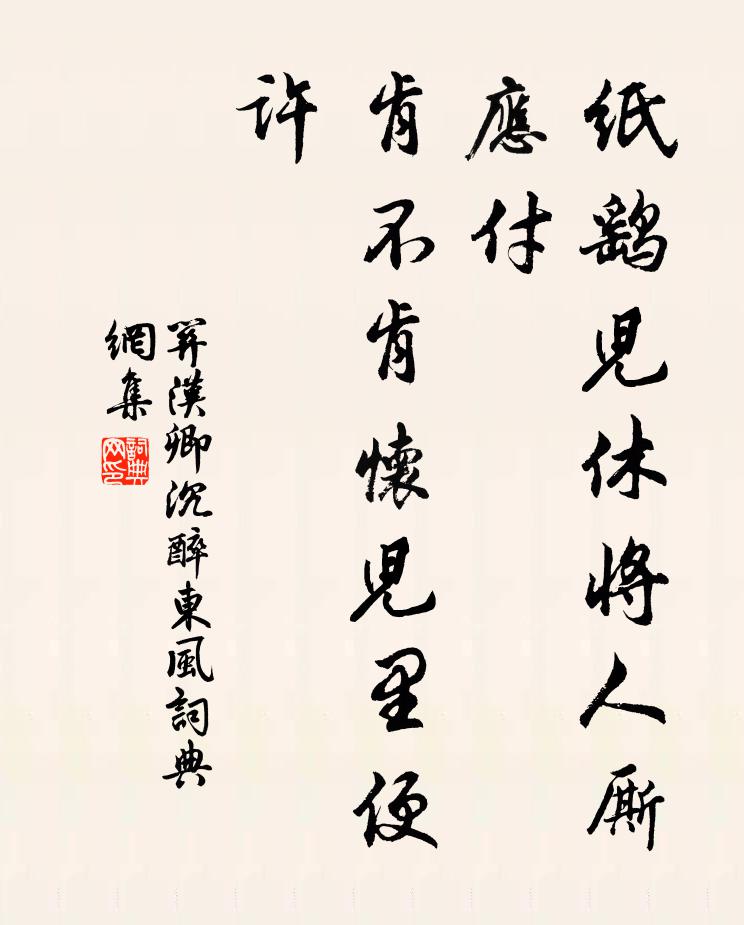 紙鷂兒休將人厮
應付
肯不肯懷兒里便
許
關漢卿沉醉東風詞典
網集
詞典網印